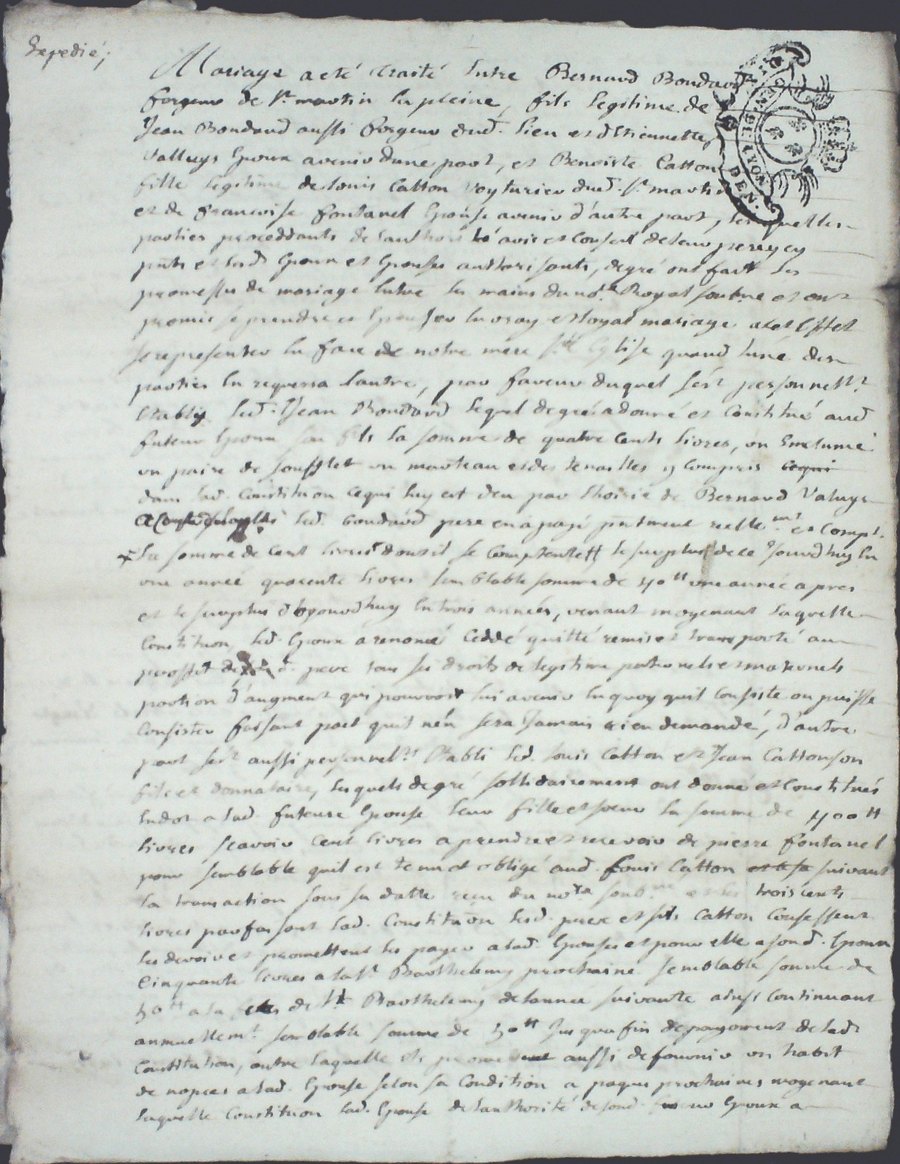 Expedié;
Mariage a eté traité Entre Bernard Boudard
forgeur de St martin la pleine, fils legitime de
Jean Boudard aussi forgeur dud. lieu et d'Etiennette
Valluys Epoux avenir dune part, et Benoiste Catton
fille legitime de Louis Catton voyturier dud. St martin
et de francoise fontanel Epouse avenir d'autre part, lesquelles
parties proceddants de lauthorité avis et conseil de leur pere
pnts et lesd. Epoux et Epouses authorisants, de gré ont fait les
promesses de mariage Entre les mains du no.re Royal soubné et ont
promis se prendre et Epouser En vray et loyal mariage a cet effet
se representer En face de notre mere Ste Eglise quand lune des
parties En requerra lautre, par faveur duquel sest personnellt
Etably led. Jean Boudard lequel de gré a donné et constitué aud
futeur Epoux son fils la somme de quatre cents livres, un Enclume
un paire de soufflet un marteau et des tenailles y compris cequi
dans lad. Constituon cequi luy est deu par lhoirie de Bernard Valuys
led. boudard pere en a payé pntement reellemt et compt.
la somme de Cent livres le surplus de ce Jourdhuy En
une année quarente livres semblable somme de 40 tt une année apres
et le surplus d'aujourdhuy En trois années, venant moyenant laquelle
Constituon led. Epoux a renoncé ceddé quitté remis et transporté au
proffit de pere tous ses droits de legitime paternels et maternels
portion d'augment qui pourroit lui avenir En quoy quil consiste ou puisse
consister faisant pact quil n'en sera Jamais rien demandé, d'autre
part sest aussi personnellt Etabli led. Louis Catton et Jean Catton son
fils et donnataire, lesquels de gré sollidairement ont donné et Constitués
En dot a lad. future Epouse leur fille et soeur la somme de 400 tt
livres scavoir cent livres a prendre et recevoir de pierre fontanel
pour semblable quil est tenu et obligé aud. Louis Catton et la suivant
la transaction sous sa datte receu du no.re soub.né et les trois cents
livres parfaisant lad. Constituon lesd. pere et fils Catton Confessent
les devoir et promettent les payer a lad. Epouse et pour elle a sond. Epoux
Cinquante livres a la St Barthelemy prochaine semblable somme de
50 tt a la fete de St Barthelemy de lannee suivante ainsi Continuant
annuellemt semblable somme de 50 tt Jusqua fin de payement de lad.
Constitution, outre laquelle ils promettent aussi de fournir un habit
de nopces a lad. Epouse selon sa Condition a paques prochaines moyenant
laquelle Constituon lad. Epouse de lauthorité de sond. futeur Epoux a
GEN. DE LYON
DEN.